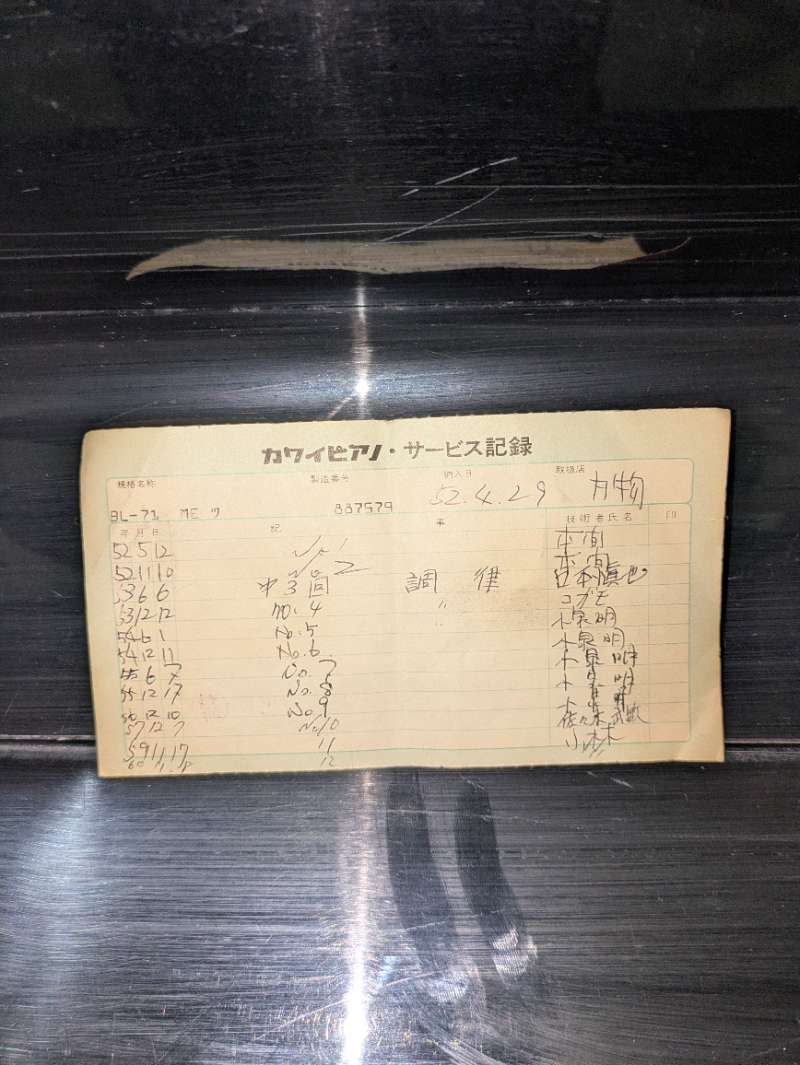 カワイピアノ・サービス記録
規格名称 製造番号 納入日 取扱店
BL-71 MEツ 887579 52.4.29
年月日 記事 技術者氏名 印
52 5 12 No 1 本間
52 11 10 No 2 本間
53 6 6 オ3回 調律
53 12 12 no. 4 〃 コグモ
54 6 1 No. 5 小泉 明
54 12 11 No. 6 小泉 明
55 6 7 No. 7
55 12 17 No. 8
56 12 10 No. 9
57 12 7 No 10 佐々木
59 11 17 11 小杉
60 12